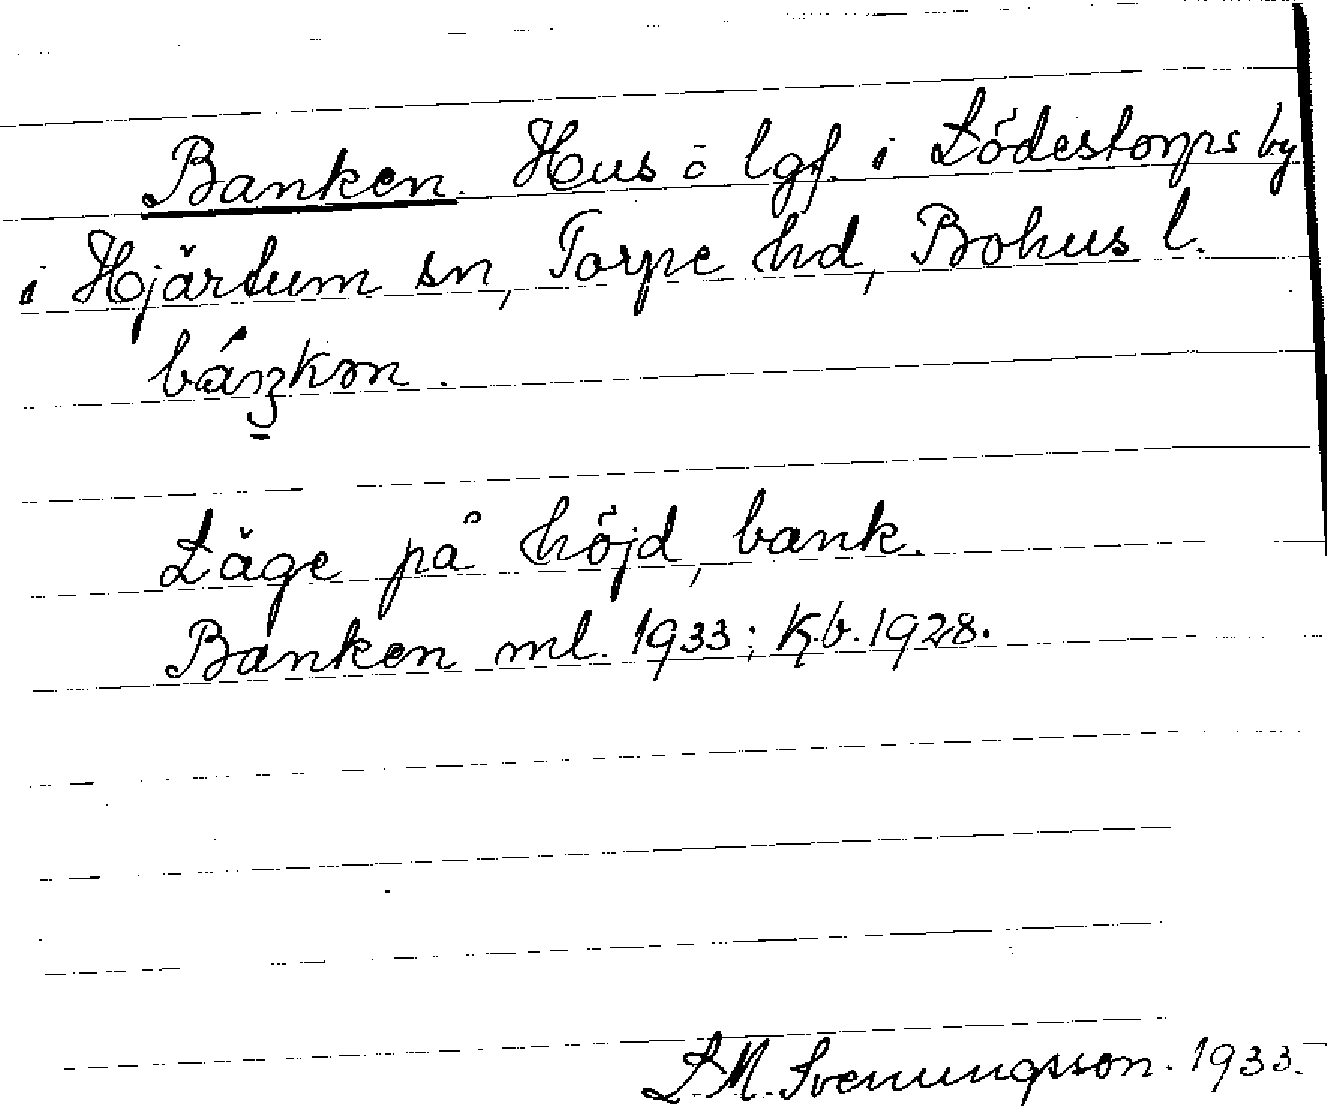 Banken. Hus o lgf. i Lödestorps by
i Hjärtum sn, Torpe hd, Bohus l.
Läge på höjd, bank.
Banken ml. 1933; Kb. 1928.
L.M. Svenungsson. 1933.